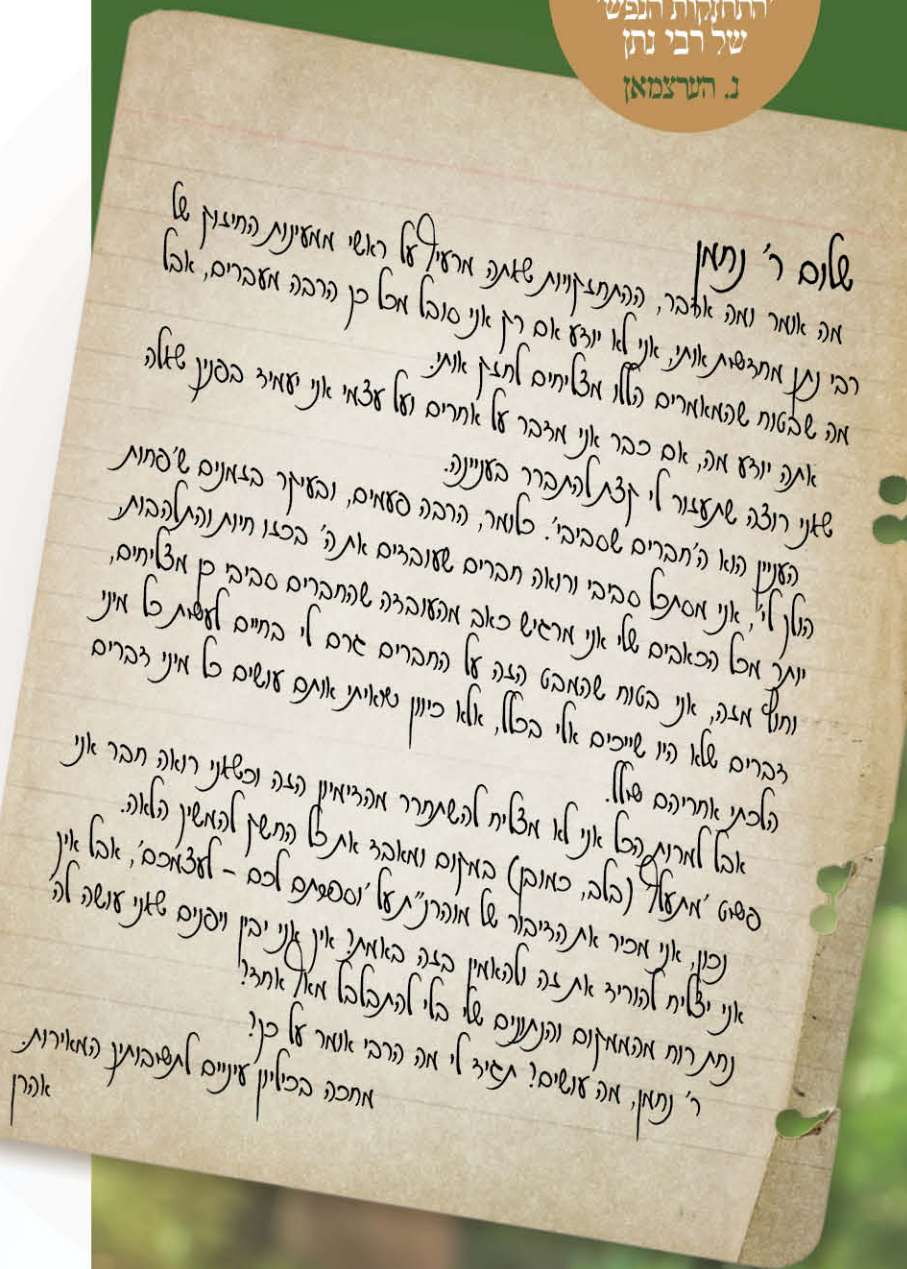 'התחזקות הנפש'
של רבי נתן
נ. הערצמאן
שלום ר' נחמן
מה אומר ומה אדבר, ההתחזקויות שאתה מרעיף על ראשי ממעינות החיזוק של
רבי נתן מחדשות אותי, אני לא יודע אם רק אני סובל מכל כך הרבה מעברים, אבל
מה שבטוח שהמאמרים הללו מצליחים לחזק אותי.
אתה יודע מה, אם כבר אני מדבר על אחרים ועל עצמי אני יעמיד בפניך שאלה
שאני רוצה שתעזור לי קצת להתברר בעניינה.
העניין הוא ה'חברים שסביבי'. כלומר, הרבה פעמים, ובעיקר בזמנים ש'פחות
הולך לי', אני מסתכל סביבי ורואה חברים שעובדים את ה' בכזו חיות והתלהבות,
יותר מכל הכאבים שלי אני מרגיש כאב מהעובדה שהחברים סביבי כן מצליחים,
וחוץ מזה, אני בטוח שהמבט הזה על החברים גרם לי בחיים לעשות כל מיני
דברים שלא היו שייכים אלי בכלל, אלא כיוון שראיתי אותם עושים כל מיני דברים
הלכתי אחריהם שולל.
אבל למרות הכל אני לא מצליח להשתחרר מהדימיון הזה וכשאני רואה חבר אני
פשוט 'מתעלף' (בלב, כמובן) במקום ומאבד את כל החשק להמשיך הלאה.
נכון, אני מכיר את הדיבור של מוהרנ"ת על 'וספרתם לכם - לעצמכם', אבל איך
אני יצליח להוריד את זה ולהאמין בזה באמת? איך אני יבין ויפנים שאני עושה לה'
נחת רוח מהמקום והנתונים שלי בלי להתבלבל מאף אחד?
ר' נחמן, מה עושים? תגיד לי מה הרבי אומר על כך?
מחכה בכיליון עיניים לתשובותיך המאירות.
אהרן